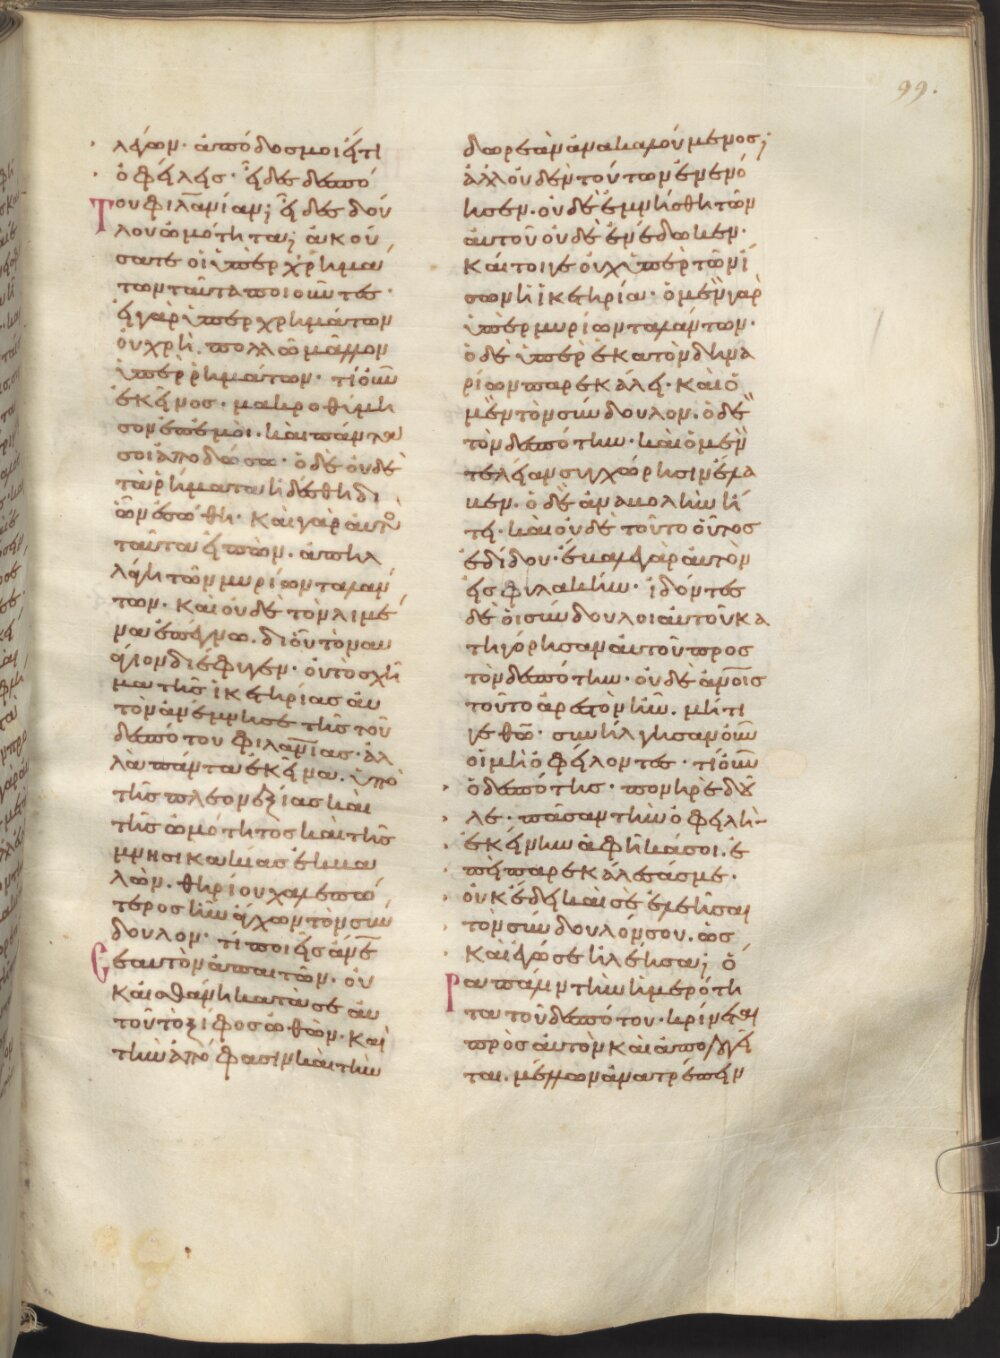 99.
λέγων· ἀπόδος μοι εἴ τι
ὀφείλεις· εἶδες δεσπό
του φιλανίαν; εἶδες δού
λου ὠμότητα; ἀκού
σατε οἱ ὑπὲρ χρημά
των ταῦτα ποιοῦντες·
εἰ γὰρ ὑπὲρ χρημάτων
οὐ χρὴ. πολλῶ μᾶλλον
ὑπὲρ ῥημάτων· τί οὖν
ἐκεῖνος· μακροθύμη
σον ἐπ' ἐμοὶ. καὶ πάντα
σοι ἀποδώσω· ὁ δὲ οὐδὲ
τὰ ῥήματα ἠδέσθη δι'
ὧν ἐσώθη· καὶ γὰρ αὐτὸς
ταῦτα εἰπὼν. ἀπηλ
λάγη τῶν μυρίων ταλάν
των· καὶ οὐδὲ τὸν λιμέ
να ἐπέγνω. δι' οὗ τὸ ναυ
άγιον διέφυγεν· οὐ τὸ σχῆ
μα τῆς ἱκετηρίας αὐ
τὸν ἀνέμνησε τῆς τοῦ
δεσπότου φιλανίας· ἀλ
λὰ πάντα ἐκεῖνα. ὑπὸ
τῆς πλεονεξίας καὶ
τῆς ὠμότητος καὶ τῆς
μνησικακίας ἐκβα
λὼν. θηρίου χαλεπώ
τερος ἦν ἄγχων τὸν σύν
δουλον· τί ποιεῖς ἄνε
σεαυτὸν ἀπαιτῶν· οὐ
κ αἰσθάνη κατὰ σε αὐ
τοῦ τὸ ξίφος ὠθῶν· καὶ
τὴν ἀπόφασιν καὶ τὴν
δωρεὰν ἀνακαλούμενος;
ἀλλ' οὐδὲν τούτων ἐνενό
ησεν. οὐδὲ ἐμνήσθη τῶν
αὐτοῦ οὐδὲ ἐνέδωκεν·
καίτοιγε οὐχ ὑπὲρ τῶν ἴ
σων ἡ ἱκετηρία· ὁ μὲν γὰρ
ὑπὲρ μυρίων ταλάντων·
ὁ δὲ ὑπὲρ ἑκατὸν δηνα
ρίων παρεκάλει· καὶ ὁ
μὲν τὸν σύνδουλον. ὁ δὲ
τὸν δεσπότην· καὶ ὁ μὲν
τελείαν συγχώρησιν ἔλα
βεν. ὁ δὲ ἀναβολὴν ἤ
τει· καὶ οὐδὲ τοῦτο οὗτος
ἐδίδου· ἔβαλε γὰρ αὐτὸν
εἰς φυλακήν· ἰδόντες
δὲ οἱ σύνδουλοι αὐτοῦ κα
τηγόρησαν αὐτοῦ πρὸς
τὸν δεσπότην· οὐδὲ ἀνοις
τοῦτο ἀρεστὸν ἦν. μήτι
γε θῶ· συνήλγησαν οὖν
οἱ μὴ ὀφείλοντες· τί οὖν
ὁ δεσπότης· πονηρὲ δοῦ
λε· πᾶσαν τὴν ὀφειλὴν
ἐκείνην ἀφῆκά σοι. ἐ
πεὶ παρεκάλεσάς με·
οὐκ ἔδει καὶ σὲ ἐλεῆσαι
τὸν σύνδουλόν σου. ὡς
καὶ ἐγώ σε ἠλέησα; ὅ
ρα πάλιν τὴν ἡμερότη
τα τοῦ δεσπότου· κρίνεται
πρὸς αὐτὸν καὶ ἀπολογεῖ
ται. μέλλων ἀνατρέπειν